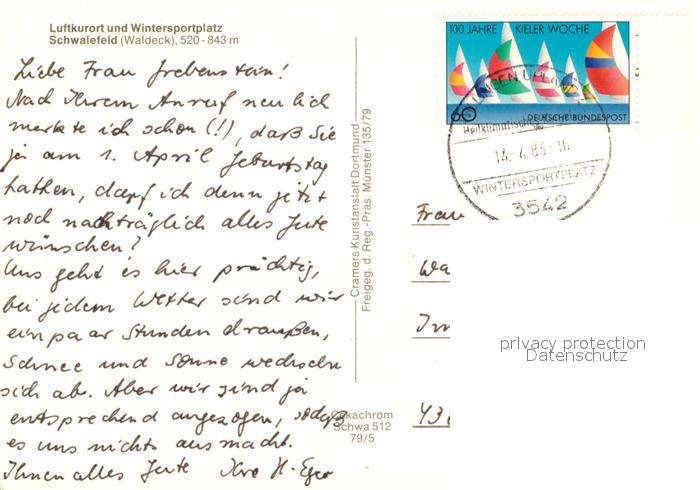 Luftkurort und Wintersportplatz
Schwalefeld (Waldeck), 520-843 m
Liebe Frau Grebenstein!
Nach Ihrem Anruf neulich
merkte ich schon (!), daß Sie
ja am 1. April Geburtstag
hatten, darf ich denn jetzt
noch nachträglich alles Gute
wünschen?
Uns geht es hier prächtig,
bei jedem Wetter sind wir
ein paar Stunden draußen,
Schnee und Sonne wechseln
sich ab. Aber wir sind ja
entsprechend angezogen, sodaß
es uns nichts ausmacht.
Ihnen alles Gute Ihre H.
Cramers Kunstanstalt Dortmund
Freigeg. d. Reg.-Präs. Münster 135/79
Cekachrom
Schwa 512
79/5
100 JAHRE KIELER WOCHE
60 DEUTSCHE BUNDESPOST
Heilklimatisch
14.-4.83-16
WINTERSPORTPLATZ
3542
Frau
Wa
43
privacy protection
Datenschutz